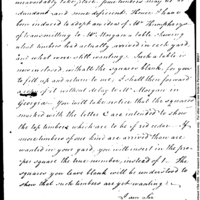 unavoidably take place, from timbers being
abundant and some deficient. Hence I have
been induced to adopt an idea of Mr. Humphreys
of transmitting to Mr. Morgan a table shewing
what timbers had actually arrived in each yard,
and what were still wanting. Such a table is
now enclosed, with all the squares blank, for you
to fill up and return to me; I shall then forward
a copy of it without delay to Mr. Morgan in
Georgia. You will take notice that the squares
marked with the letter c are intended to show
the top timbers which are to be of red cedar. If
more timbers of one kind are arrived than are
wanted in your yard, you will insert in the pro-
per square the true number, instead of 1. The
squares you leave blank will be understood to
show that such timbers are yet wanting.
I am Sir